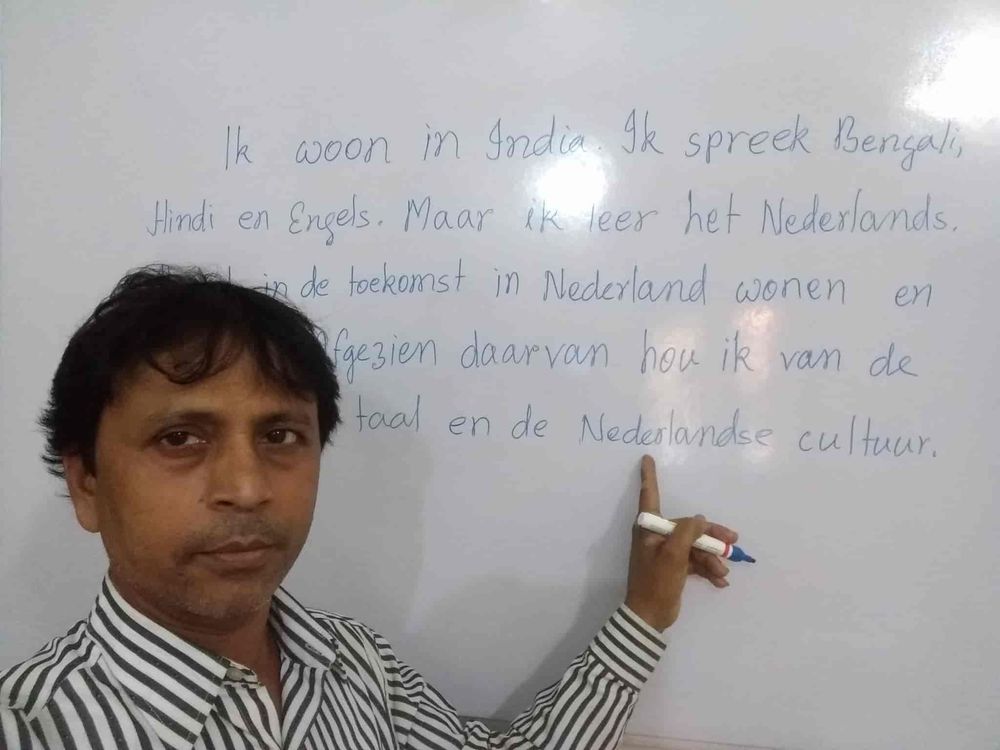 Ik woon in India. Ik spreek Bengali,
Hindi en Engels. Maar ik leer het Nederlands.
in de toekomst in Nederland wonen en
daarvan hou ik van de
taal en de Nederlandse cultuur.